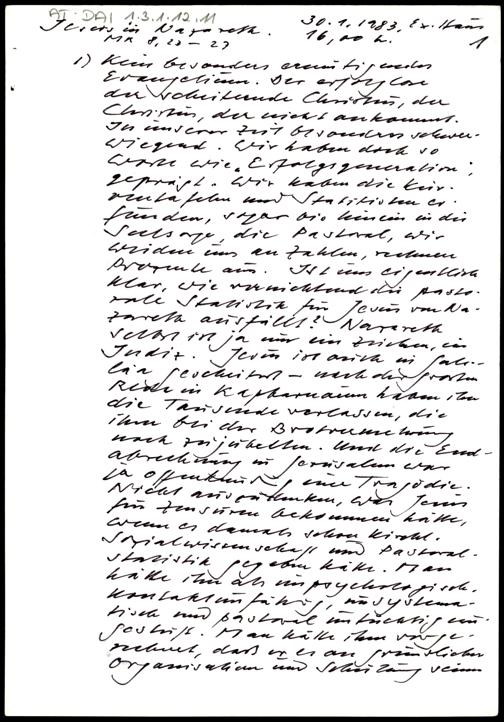 AT-DAI 1.3.1.12.11
Jesus in Nazareth. 30.1.1983, Ex. Haus
Mk 8,23-27 16,00 h. 1
1) Kein besonders ermutigendes
Evangelium. Der erfolglose
der scheiternde Christus, der
Christus, der nicht ankommt.
In unserer Zeit besonders schwer-
wiegend. Wir haben doch so
Worte wie "Erfolgsgeneration",
geprägt. Wir haben die Kur-
ventafeln und Statistiken er-
funden, sogar bis hinein in die
Seelsorge, die Pastoral, wir
weiden uns an Zahlen, rechnen
Prozente aus. Ist uns eigentlich
klar, wie vernichtend die pasto-
rale Statistik für Jesus von Na-
zareth ausfällt? Nazareth
selbst ist ja nur ein Zeichen, ein
Indiz. Jesus ist auch in Gali-
läa gescheitert - nach der großen
Rede in Kapharnaum haben ihn
die Tausende verlassen, die
ihm bei der Brotvermehrung
noch zujubelten. Und die End-
abrechnung in Jerusalem war
ja offenkundig eine Tragödie.
Nicht auszudenken, was Jesus
für Zensuren bekommen hätte,
wenn es damals schon kirchl.
Sozialwissenschaft und Pastoral-
statistik gegeben hätte. Man
hätte ihn als unpsychologisch,
kontaktunfähig, unsystema-
tisch und pastoral untüchtig ein-
gestuft. Man hätte ihm vorge-
rechnet, daß er es an gründlicher
Organisation und Schulung seiner